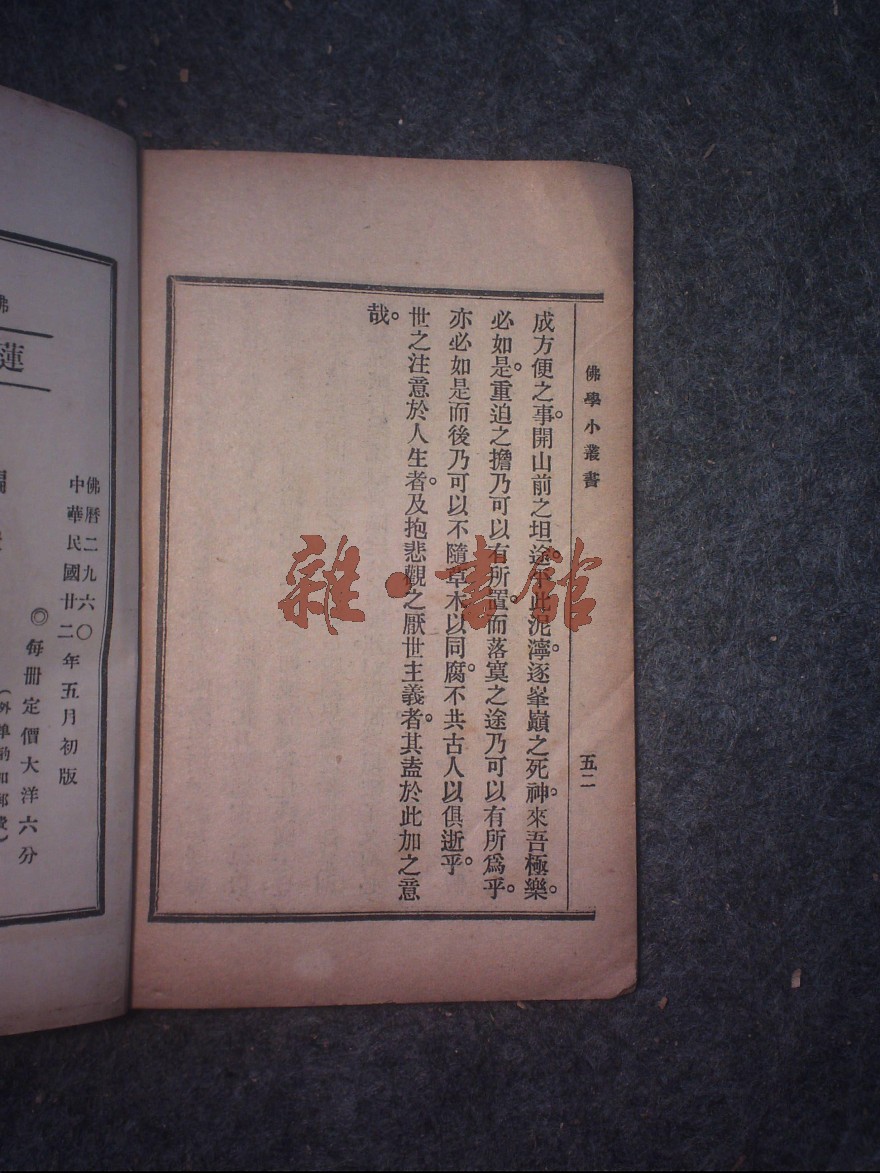 佛學小叢書
五二
成方便之事。開山前之坦途。平此泥濘。逐峯巔之死神。來吾極樂。
必如是。重迫之擔乃可以有所置。而落寞之途乃可以有所爲乎。
亦必如是而後乃可以不隨草木以同腐。不共古人以俱逝乎。
世之注意於人生者。及抱悲觀之厭世主義者。其盍於此加之意
哉。
雜·書館
佛曆二九六〇
中華民國廿二年五月初版
◎每册定價大洋六分
(外埠酌加郵費)
蓮